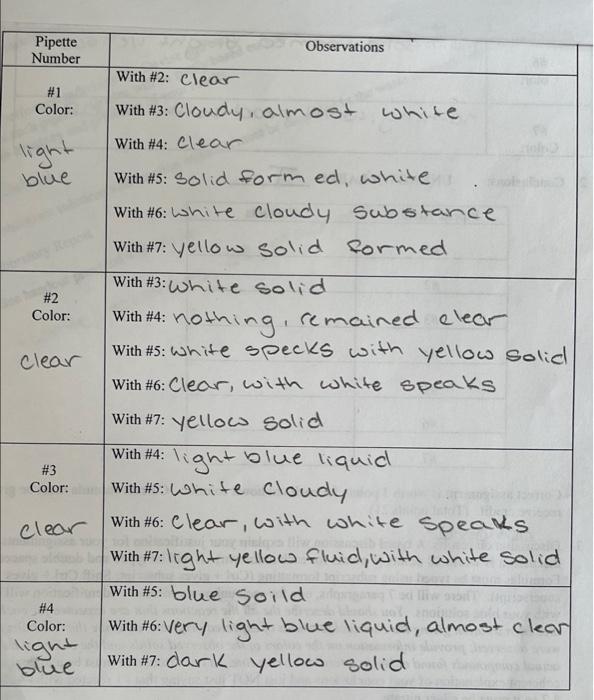 Pipette Number
Observations
#1
Color:
light
blue
With #2: clear
With #3: Cloudy, almost white
With #4: Clear
With #5: Solid form ed, white
With #6: white cloudy substance
With #7: yellow solid formed
#2
Color:
clear
With #3: white solid
With #4: nothing, remained clear
With #5: white specks with yellow solid
With #6: Clear, with white speaks
With #7: yellow solid
#3
Color:
clear
With #4: light blue liquid
With #5: white cloudy
With #6: Clear, with white speaks
With #7: light yellow fluid, with white solid
#4
Color:
light
blue
With #5: blue soild
With #6: very light blue liquid, almost clear
With #7: dark yellow solid